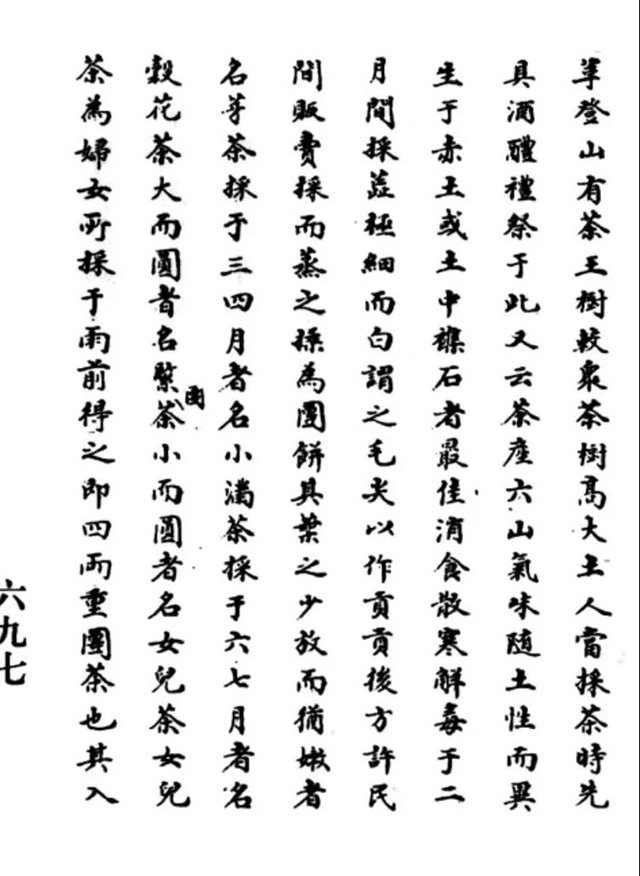 革登山有茶王樹較衆茶樹高大土人當採茶時先
具酒醴禮祭于此又云茶產六山氣味隨土性而異
生于赤土或土中雜石者最佳消食散寒解毒于二
月間採蕊極細而白謂之毛尖以作貢貢後方許民
間販賣採而蒸之揉為團餅其葉之少放而猶嫩者
名芽茶採于三四月者名小滿茶採于六七月者名
穀花茶大而圓者名緊團茶小而圓者名女兒茶女兒
茶為婦女所採于雨前得之即四兩重團茶也其入
六九七